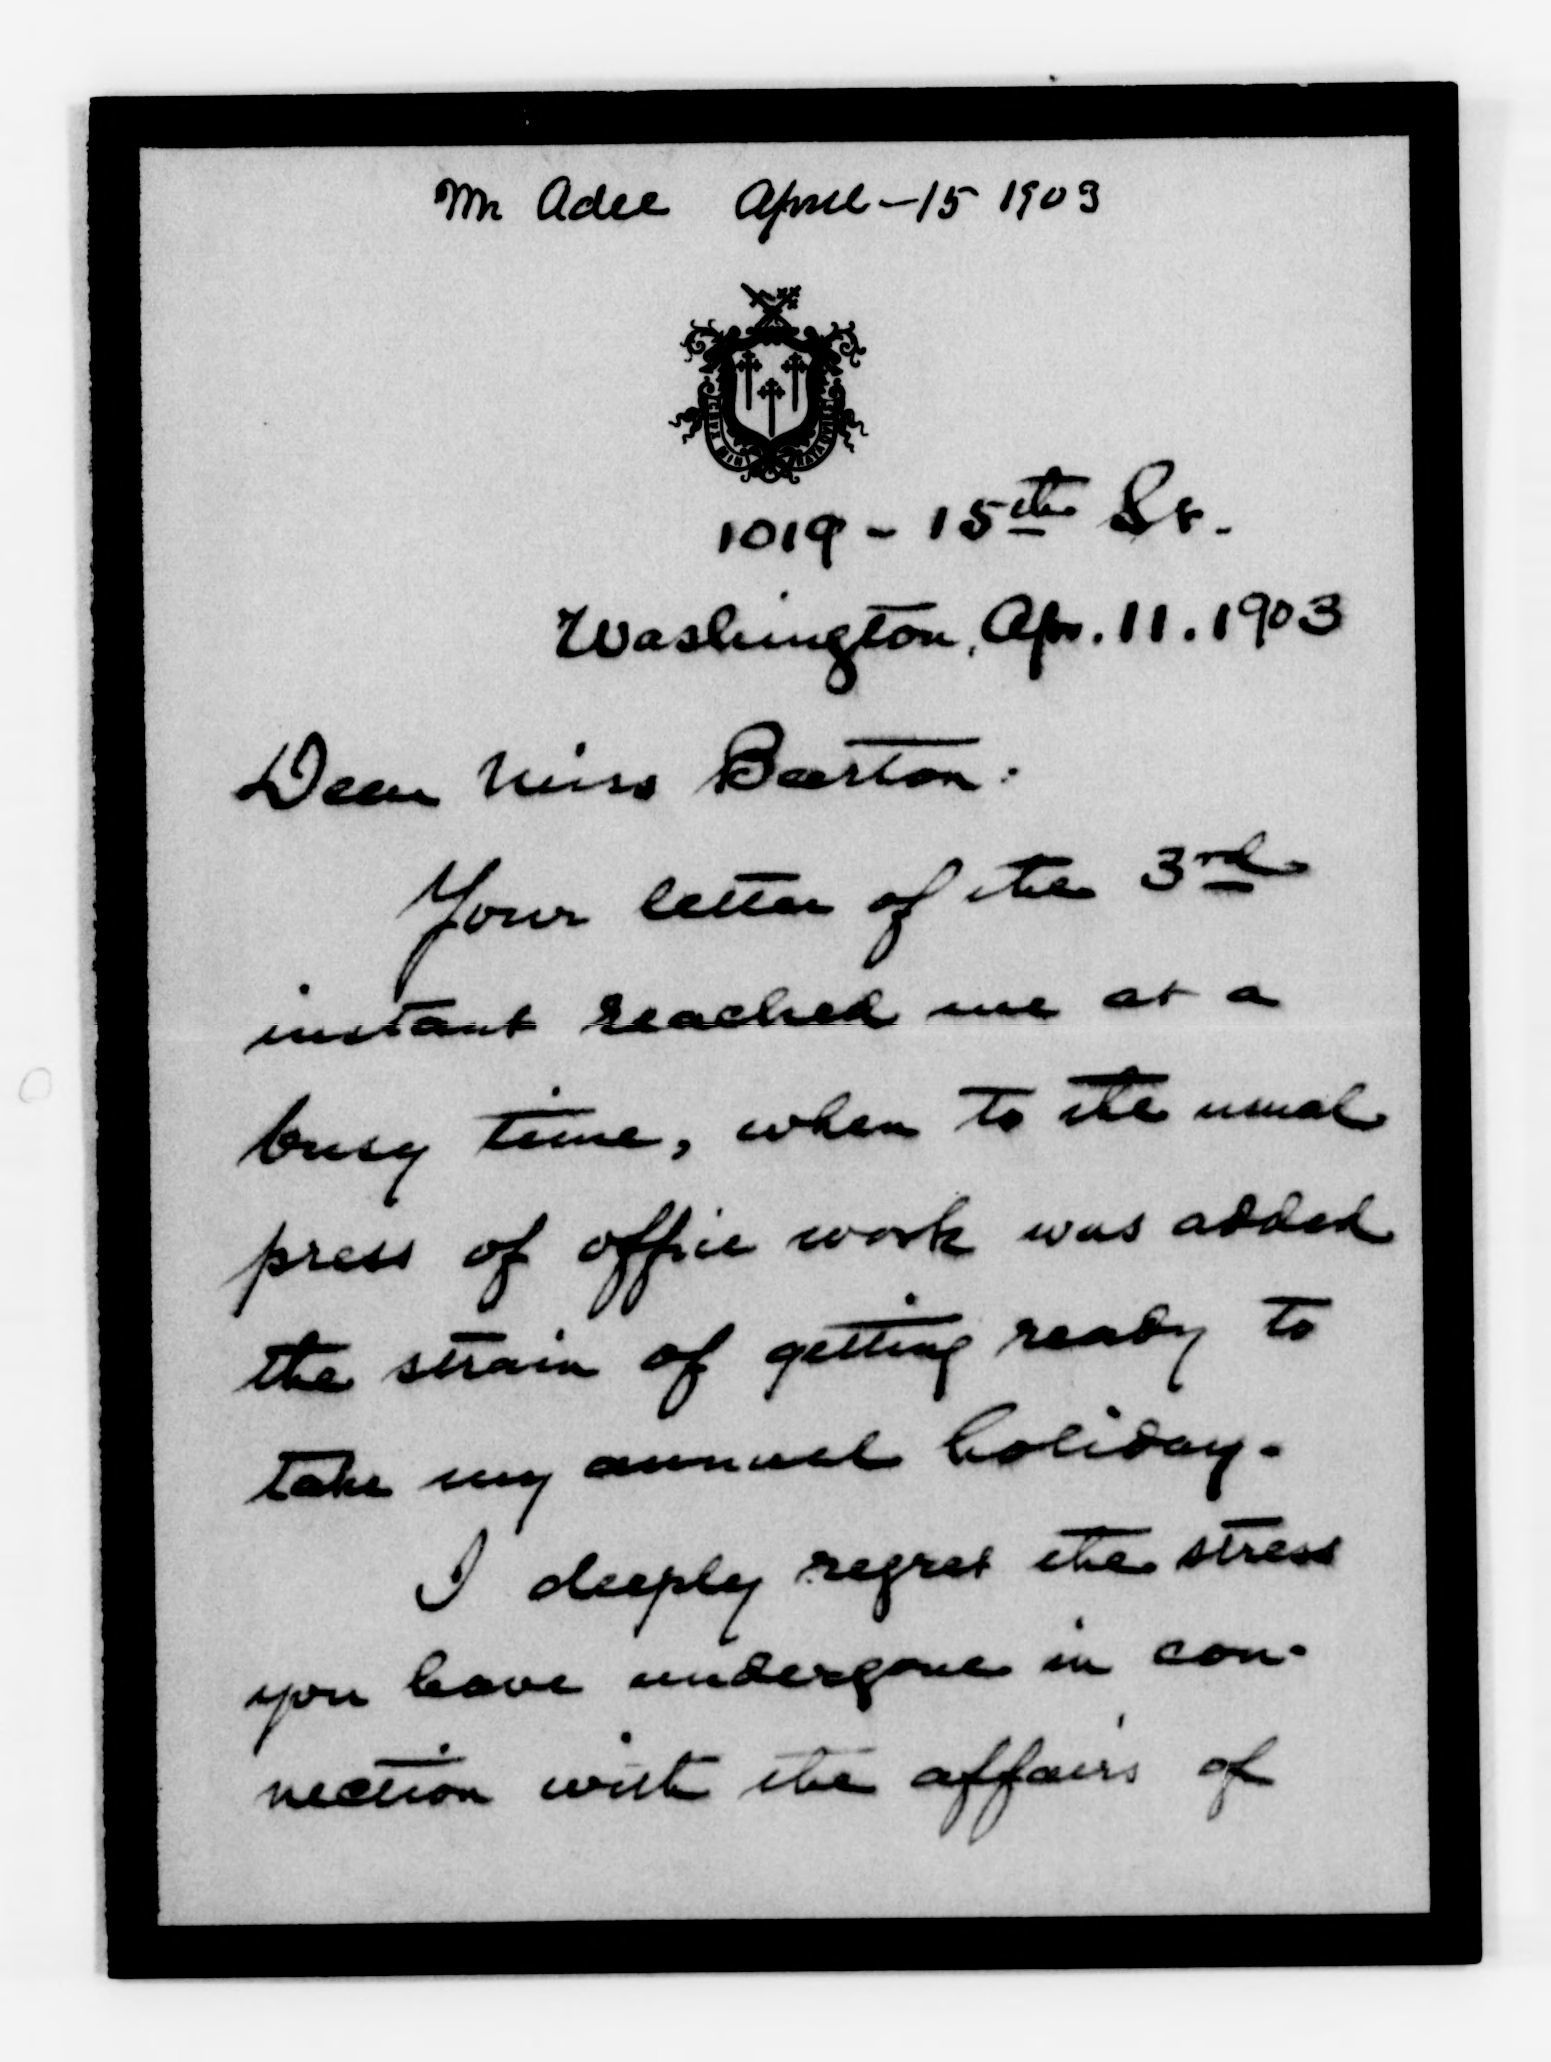 Mr Adee April - 15 1903
1019 - 15th St.
Washington, Apr. 11. 1903
Dear Miss Barton:
Your letter of the 3rd
instant reached me at a
busy time, when to the usual
press of office work was added
the strain of getting ready to
take my annual holiday.
I deeply regret the stress
you have undergone in con-
nection with the affairs of